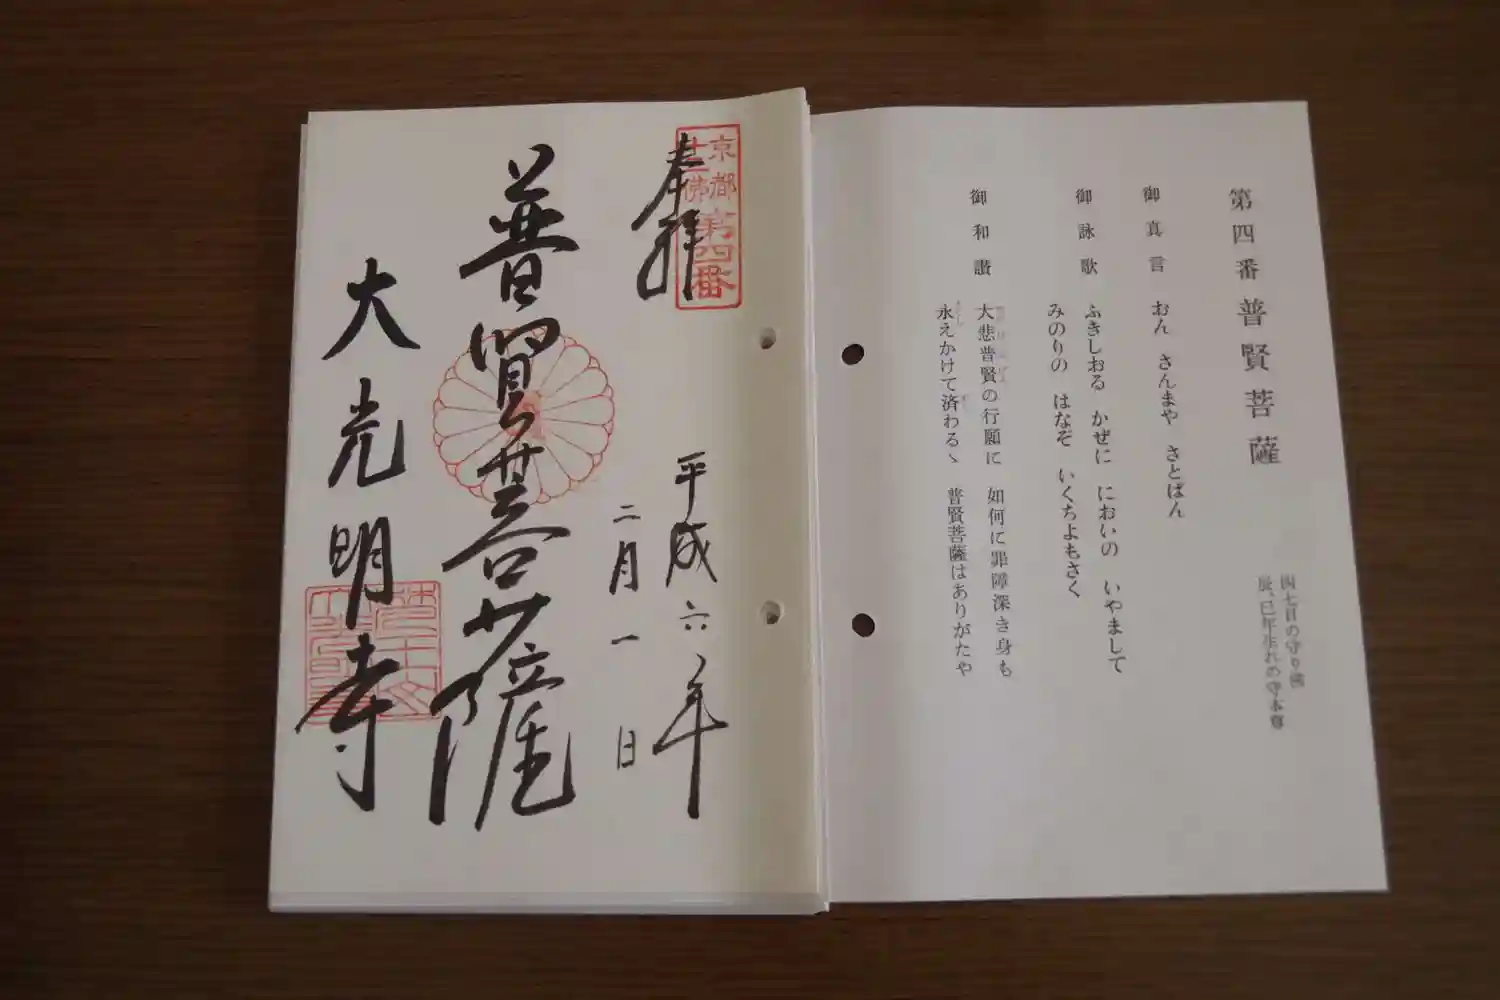 第四番 普賢菩薩
四七日の守り佛
辰、巳年生れの守本尊
御真言 おん さんまや さとばん
御詠歌 ふきしおる かぜに においの いやまして
みのりの はなぞ いくちよもさく
御和讃 大悲普賢の行願に 如何に罪障深き身も
永えかけて済わるゝ 普賢菩薩はありがたや
京都
十三佛
第四番
奉拝
平成六年
二月一日
普賢菩薩
大光明寺